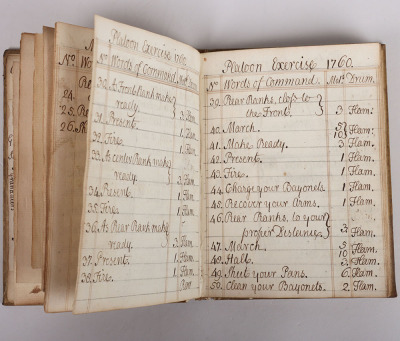 No.
Wo
24.
25.
26.
Platoon Exercise 1760.
No. Words of Command.
30. A Front Rank make
ready. 3 Flam
31. Present. 1 Flam
32. Fire. 1 Flam
33. A center Rank make
ready. 3 Flam
34. Present. 1 Flam
35. Fire. 1 Flam
36. A Rear Rank make
ready. 3 Flam
37. Present. 1 Flam
38. Fire. 1 Flam
Platoon Exercise 1760.
No Words of Command. Mots Drum.
39. Rear Ranks, close to
the Front. 3 Flam:
40. March. 5 10 Flam:
41. Make Ready. 3 Flam.
42. Present. 1 Flam.
43. Fire. 1 Flam.
44. Charge your Bayonets 1 Flam.
45. Recover your Arms. 1 Flam.
46. Rear Ranks, to your
proper Distance. 3 Flam.
47. March. 5 10 Flam.
48. Halt. 3 Flam.
49. Shut your Pans. 6 Flam.
50. Clean your Bayonets. 2 Flam.